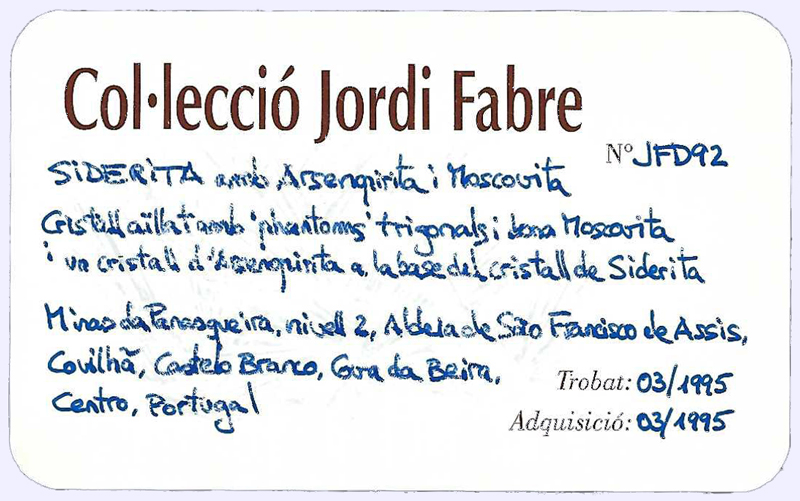 Col·lecció Jordi Fabre
Nº JFD92
SIDERITA amb Arsenopirita i Moscovita
Cristall aïllat amb 'phantoms' trigonals i bona Moscovita
i un cristall d'Arsenopirita a la base del cristall de Siderita
Minas da Panasqueira, nivell 2, Aldeia de São Francisco de Assis,
Covilhã, Castelo Branco, Cova da Beira,
Centro, Portugal
Trobat: 03/1995
Adquisició: 03/1995